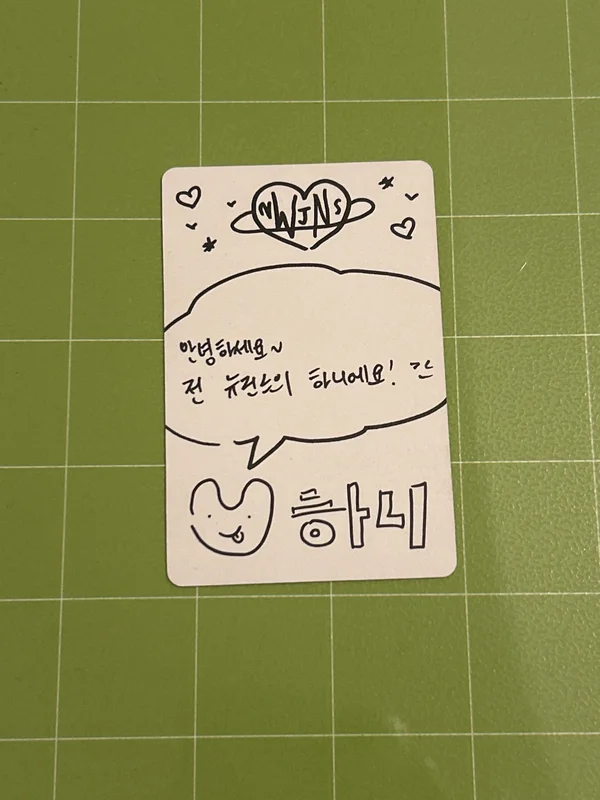 NWJNS
안녕하세요~
전 뉴진스의 하니에요! 칸
하니